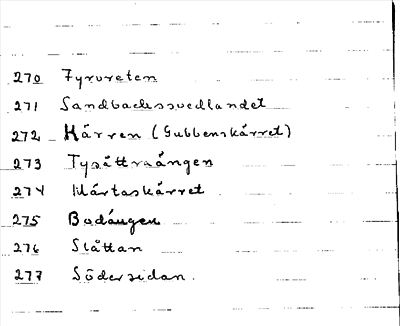 270 Fyrvreten
271 Sandbackssvedlandet
272 Kärren (Gubbenskärret)
273
274 Märtaskärret
275 Badängen
276 Slåttan
277 Södersidan.